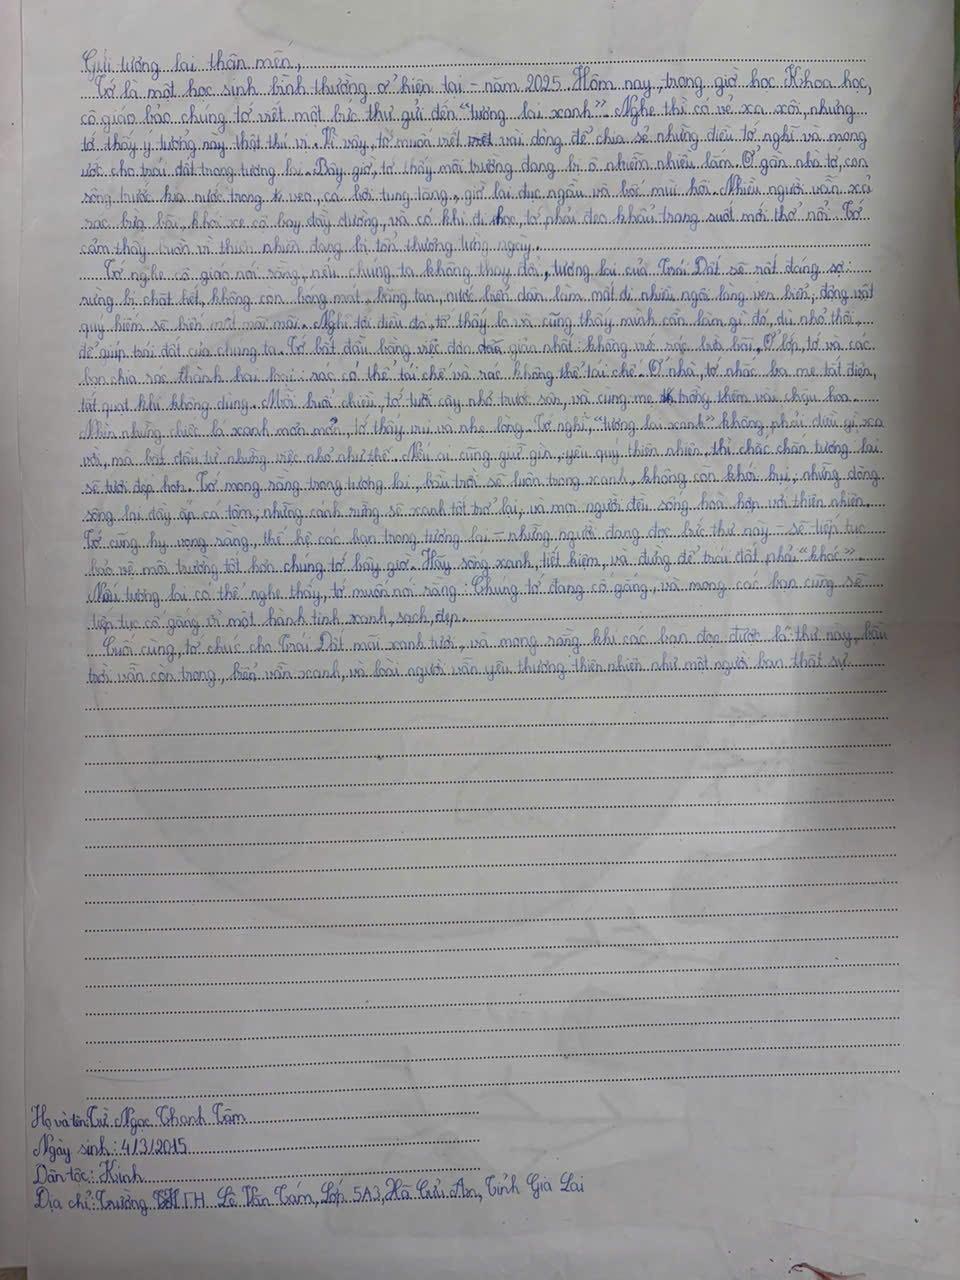 Gửi tương lai thân mến,
Tớ là một học sinh bình thường ở hiện tại - năm 2025. Hôm nay, trong giờ học Khoa học,
cô giáo bảo chúng tớ viết một bức thư gửi đến "tương lai xanh". Nghe thì có vẻ xa xôi, nhưng
tớ thấy ý tưởng này thật thú vị. Vì vậy, tớ muốn viết vài dòng để chia sẻ những điều tớ nghĩ và mong
ước cho trái đất trong tương lai. Bây giờ, tớ thấy môi trường đang bị ô nhiễm nhiều lắm. Ở gần nhà tớ, con
sông trước kia nước trong veo, cá bơi tung tăng, giờ lại đục ngầu và bốc mùi hôi. Nhiều người vẫn xả
rác bừa bãi, khói xe cộ bay đầy đường, và có khi đi học, tớ phải đeo khẩu trang suốt mới thở nổi. Tớ
cảm thấy buồn vì thiên nhiên đang bị tổn thương từng ngày.
Tớ nghe cô giáo nói rằng, nếu chúng ta không thay đổi, tương lai của Trái Đất sẽ rất đáng sợ:
rừng bị chặt hết, không còn bóng mát, băng tan, nước biển dân làm mất đi nhiều ngôi làng ven biển, động vật
quý hiếm sẽ biến mất mãi mãi. Nghĩ tới điều đó, tớ thấy lo và cũng thấy mình cần làm gì đó, dù nhỏ thôi,
để giúp trái đất của chúng ta. Tớ bắt đầu bằng việc đơn giản nhất: không vứt rác bừa bãi. Ở lớp, tớ và các
bạn chia rác thành hai loại: rác có thể tái chế và rác không thể tái chế. Ở nhà, tớ nhắc ba mẹ tắt điện,
tắt quạt khi không dùng. Mỗi buổi chiều, tớ tưới cây nhỏ trước sân, và cùng mẹ trồng thêm vài chậu hoa.
Nhìn những chiếc lá xanh mơn mởn, tớ thấy vui và nhẹ lòng. Tớ nghĩ, "tương lai xanh" không phải điều gì xa
vời, mà bắt đầu từ những việc nhỏ như thế. Nếu ai cũng giữ gìn, yêu quý thiên nhiên, thì chắc chắn tương lai
sẽ tươi đẹp hơn. Tớ mong rằng trong tương lai, bầu trời sẽ luôn trong xanh, không còn khói bụi, những dòng
sông lại đầy ắp cá tôm, những cánh rừng sẽ xanh tốt trở lại, và mọi người đều sống hoà hợp với thiên nhiên.
Tớ cũng hy vọng rằng, thế hệ các bạn trong tương lai - những người đang đọc bức thư này - sẽ tiếp tục
bảo vệ môi trường tốt hơn chúng tớ bây giờ. Hãy sống xanh, tiết kiệm, và đừng để trái đất phải "khóc".
Nếu tương lai có thể nghe thấy, tớ muốn nói rằng: Chúng tớ đang cố gắng, và mong các bạn cũng sẽ
tiếp tục cố gắng vì một hành tinh xanh, sạch, đẹp.
Cuối cùng, tớ chúc cho Trái Đất mãi xanh tươi, và mong rằng khi các bạn đọc được lá thư này, bầu
trời vẫn còn trong, biển vẫn xanh, và loài người vẫn yêu thương thiên nhiên như một người bạn thật sự.
Họ và tên: Từ Ngọc Thanh Tâm
Ngày sinh: 4/3/2015
Dân tộc: Kinh
Địa chỉ: Trường TH Lê Văn Tám, Lớp 5A3, Xã Cửu An, Tỉnh Gia Lai